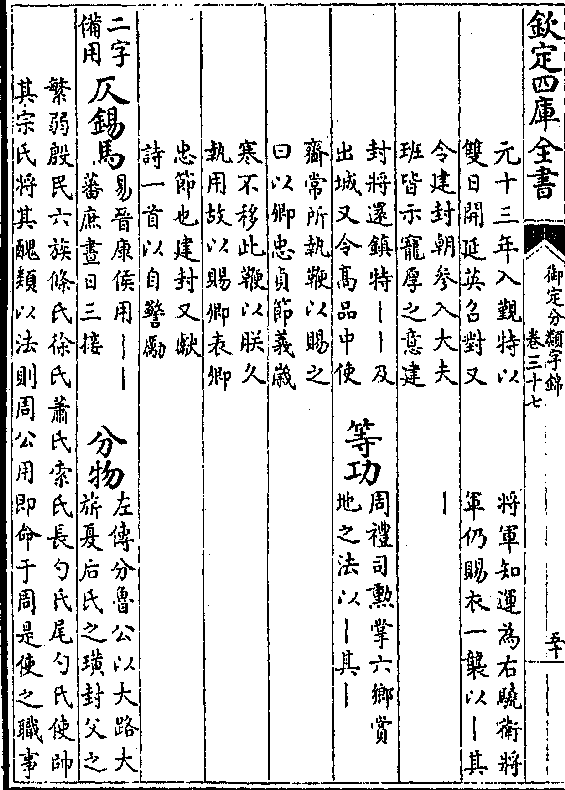 欽定四庫全書
御定分類字錦
卷三十七
五十
元十三年入覲特以
雙日開延英召對又
令建封朝參入大夫
班皆示寵厚之意建
封將還鎮特丨丨及
出城又令髙品中使
齎常所執鞭以賜之
曰以卿忠貞節義歲
寒不移此鞭以朕久
執用故以賜卿表卿
忠節也建封又獻
詩一首以自警勵
將軍知運為右驍衛將
軍仍賜衣一襲以丨其
丨
等功
周禮司勲掌六鄉賞
地之法以丨其丨
二字
備用
仄錫馬
易晉康侯用丨丨
蕃庶晝日三接
分物
左傳分魯公以大路大
旂夏后氏之璜封父之
繁弱殷民六族條氏徐氏蕭氏索氏長勺氏尾勺氏使帥
其宗氏將其醜類以法則周公用即命于周是使之職事